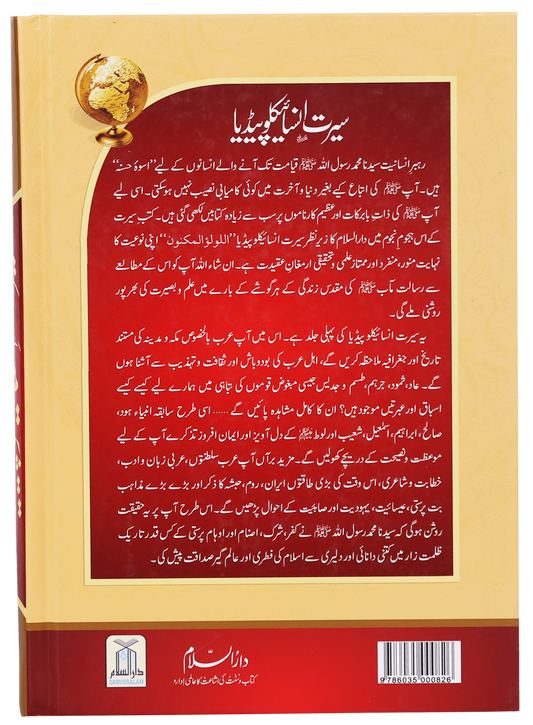 سیرت انسائیکلوپیڈیا
رہبر انسانیت سیدنا محمد رسول اللہ ﷺ قیامت تک آنے والے انسانوں کے لیے "اسوۂ حسنہ"
ہیں۔ آپ ﷺ کی اتباع کیے بغیر دنیا و آخرت میں کوئی کامیابی نصیب نہیں ہوسکتی۔ اسی لیے
آپ ﷺ کی ذات بابرکات اور عظیم کارناموں پر سب سے زیادہ کتابیں لکھی گئی ہیں۔ کتب سیرت
کے اس ہجوم نجوم میں دارالسلام کا زیرنظر سیرت انسائیکلوپیڈیا "اللؤلؤ المکنون" اپنی نوعیت کا
نہایت منور، منفرد اور ممتاز علمی و تحقیقی ارمغان عقیدت ہے۔ ان شاء اللہ آپ کو اس کے مطالعے
سے رسالت مآب ﷺ کی مقدس زندگی کے ہر گوشے کے بارے میں علم و بصیرت کی بھرپور
روشنی ملے گی۔
یہ سیرت انسائیکلوپیڈیا کی پہلی جلد ہے۔ اس میں آپ عرب بالخصوص مکہ و مدینہ کی مستند
تاریخ اور جغرافیہ ملاحظہ کریں گے، اہل عرب کی بودوباش اور ثقافت و تہذیب سے آشنا ہوں
گے۔ عاد، ثمود، جرہم، طسم و جدیس جیسی مبغوض قوموں کی تباہی میں ہمارے لیے کیسے کیسے
اسباق اور عبرتیں موجود ہیں؟ ان کا کامل مشاہدہ پائیں گے ...... اسی طرح سابقہ انبیاء ہود،
صالح، ابراہیم، اسمٰعیل، شعیب اور لوط کے دل آویز اور ایمان افروز تذکرے آپ کے لیے
موعظت و نصیحت کے دریچے کھولیں گے۔ مزید برآں آپ عرب سلطنتوں، عربی زبان و ادب،
خطابت و شاعری، اس وقت کی بڑی طاقتوں ایران، روم، حبشہ کا ذکر اور بڑے بڑے مذاہب
بت پرستی، عیسائیت، یہودیت اور صابئیت کے احوال پڑھیں گے۔ اس طرح آپ پر یہ حقیقت
روشن ہوگی کہ سیدنا محمد رسول اللہ ﷺ نے کفر، شرک، اصنام اور اوہام پرستی کے کس قدر تاریک
ظلمت زار میں کتنی دانائی اور دلیری سے اسلام کی فطری اور عالم گیر صداقت پیش کی۔
دارالسلام
کتاب و سنت کی اشاعت کا عالمی ادارہ
دارالسلام
DARUSSALAM
9786035000826